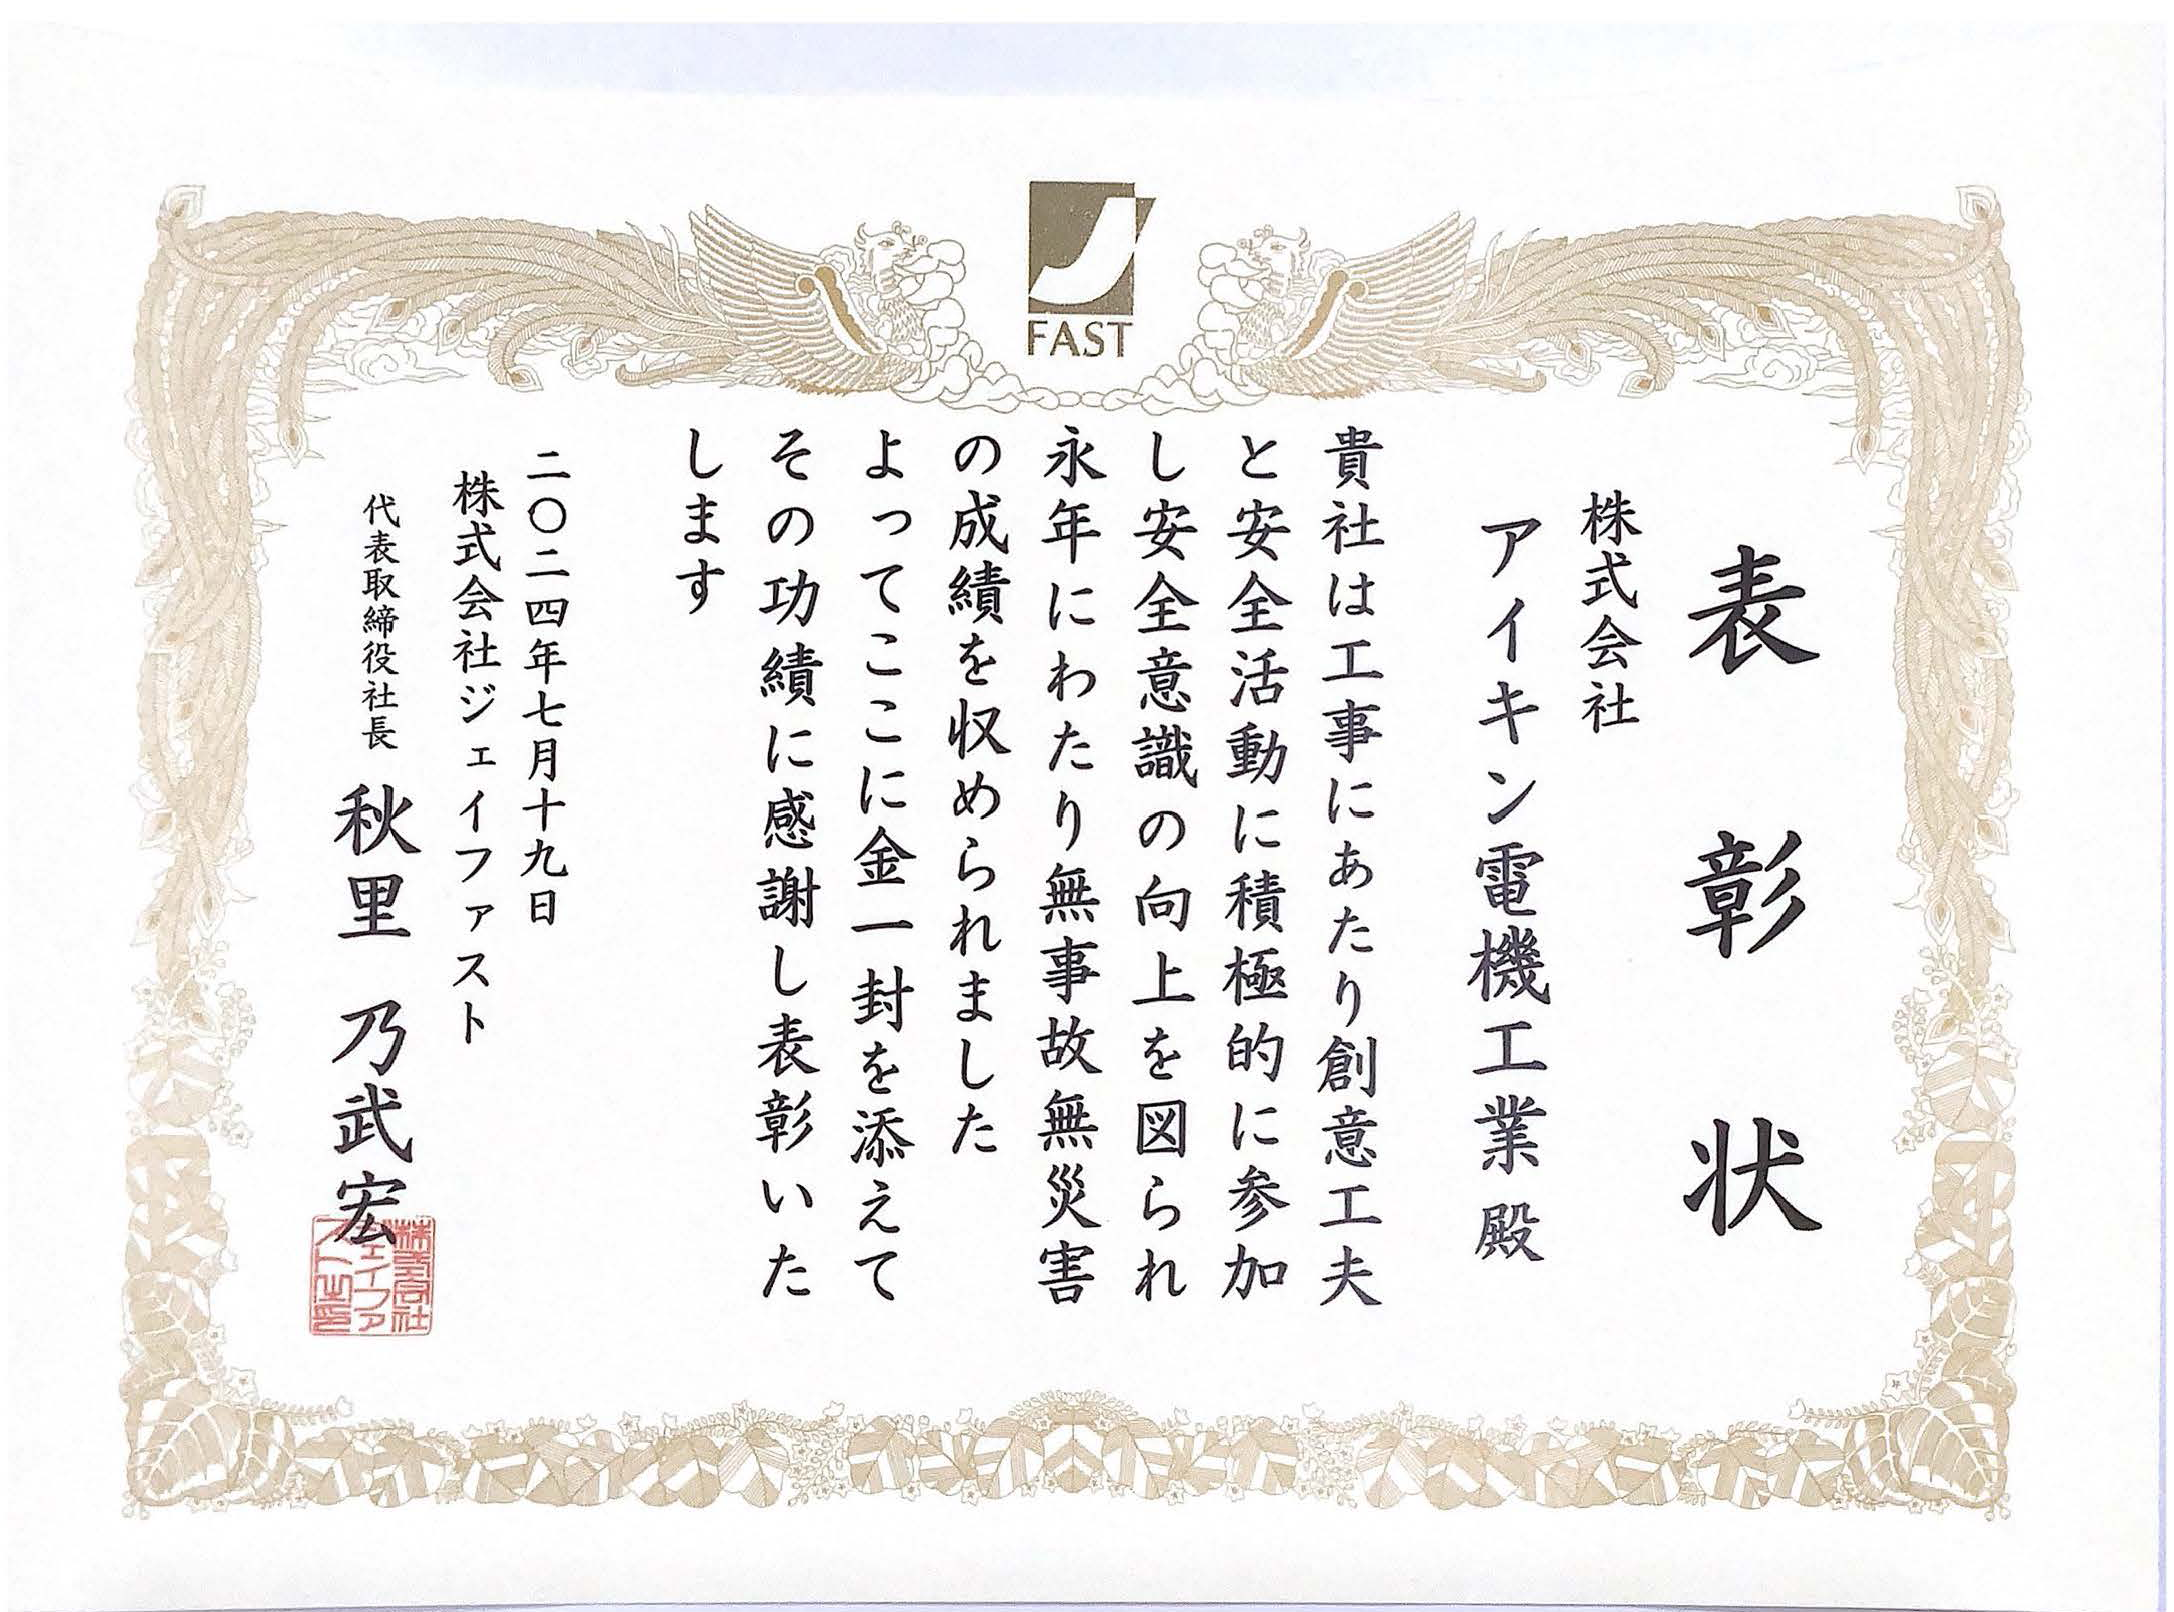 FAST
表彰状
株式会社
アイキン電機工業殿
貴社は工事にあたり創意工夫
と安全活動に積極的に参加
し安全意識の向上を図られ
永年にわたり無事故無災害
の成績を収められました
よってここに金一封を添えて
その功績に感謝し表彰いた
します
二〇二四年七月十九日
株式会社ジェイファスト
代表取締役社長 秋里乃武宏
株式会社
ジェイファ
スト之印